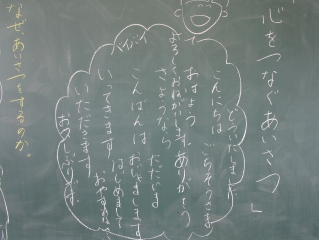 心をつなぐあいさつ」
どういたしまして
こんにちは ごちそうさま
おはよう ありがとう
よろしくおねがいします
さようなら ただいま
こんばんは おじゃまします
バイバイ
いってきます はじめまして
いただきます おやすみ
おひさしぶりです
なぜ、あいさつをするのか。